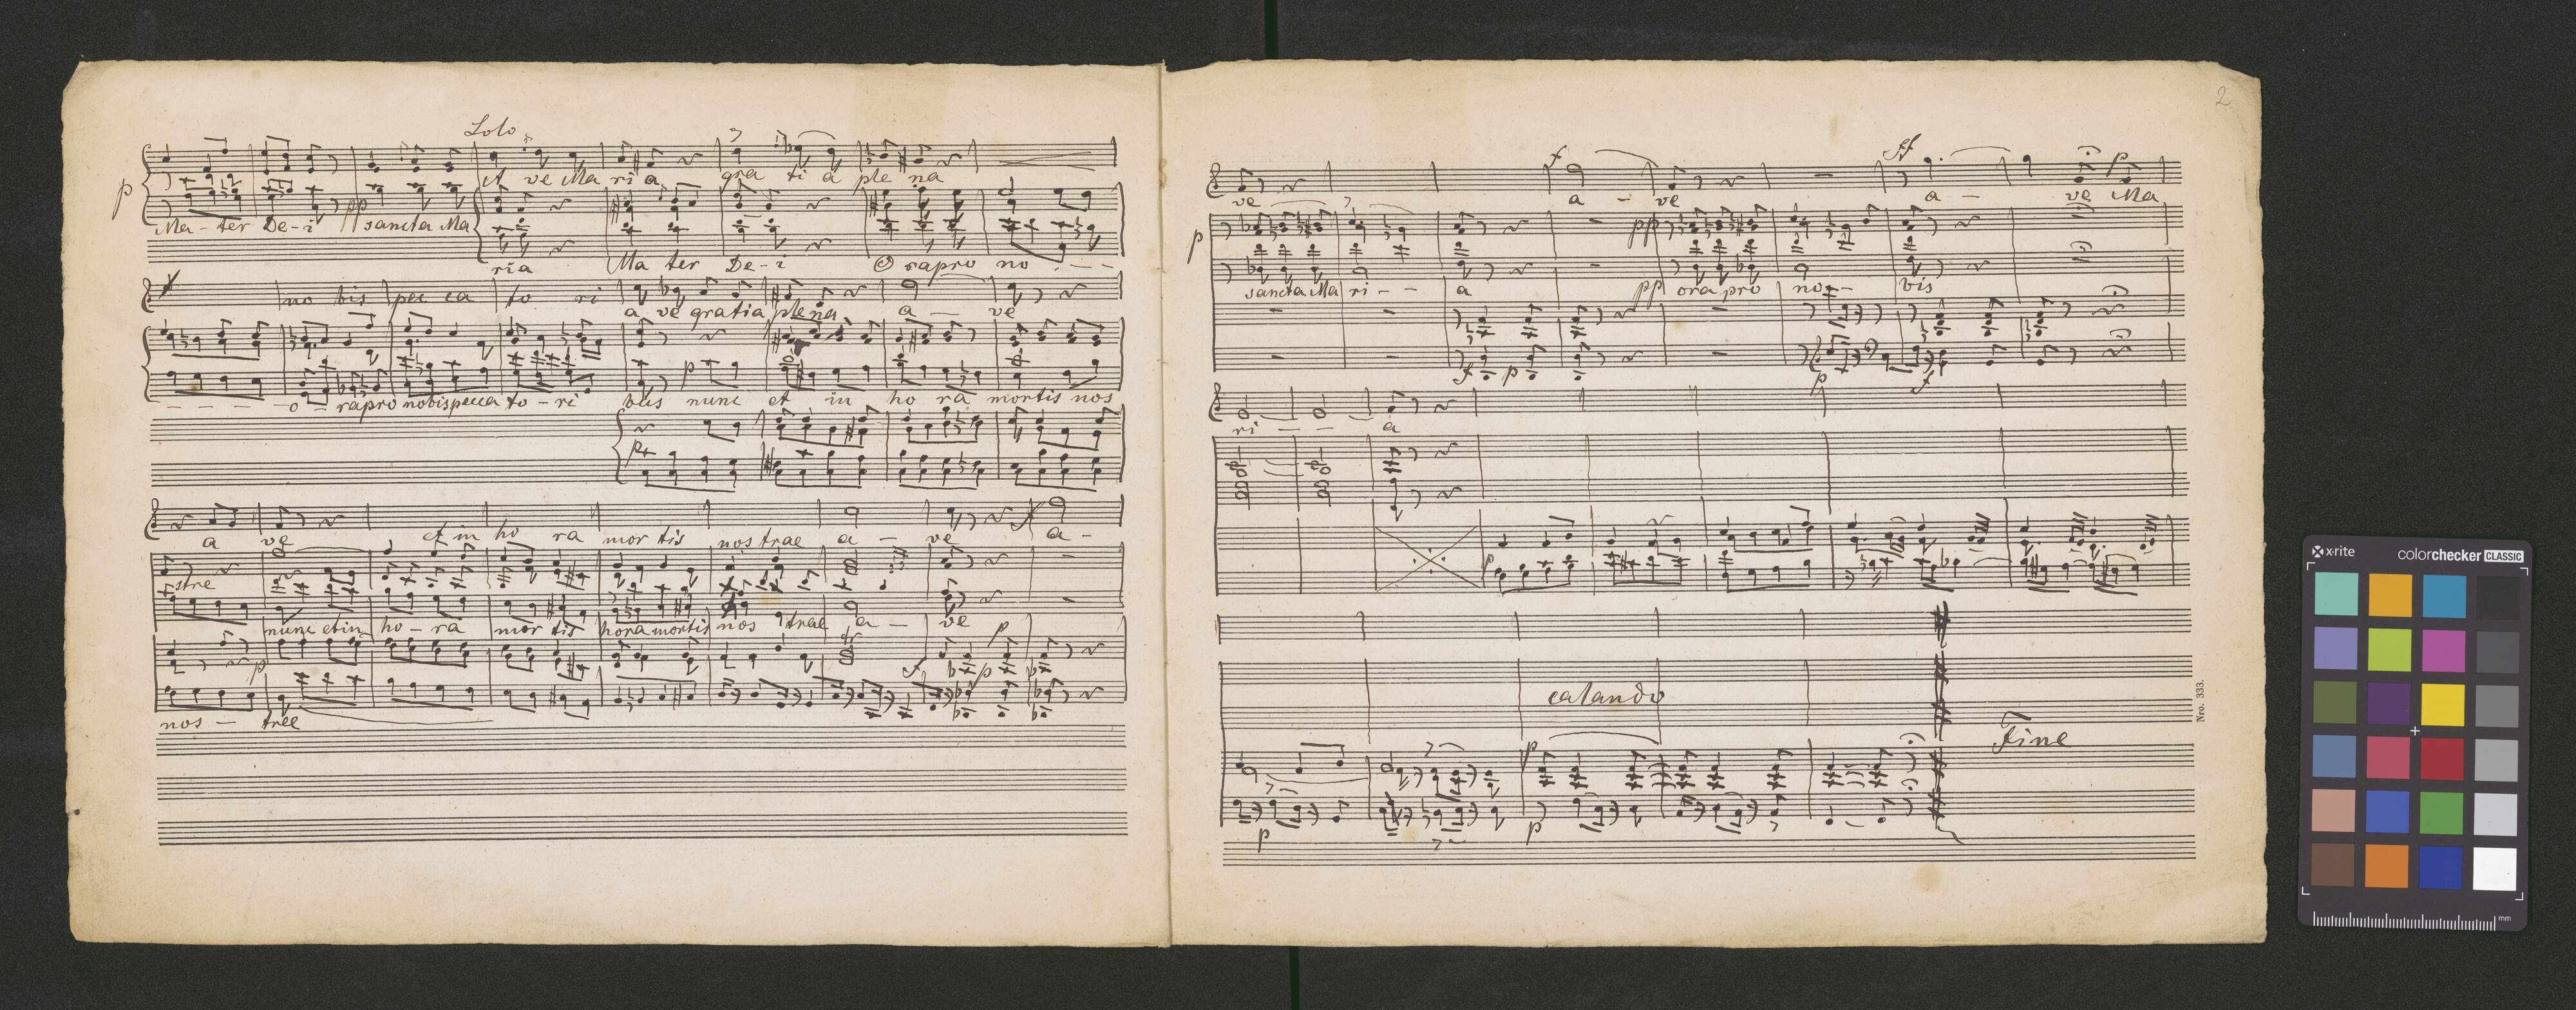 Solo
A ve Ma ri a gra ti a ple na
p
pp
Ma - ter De - i sancta Ma
ria Ma ter De - i O ra pro no - - -
no bis pec ca to ri a ve gratia plena a — ve
p
- - - - o - ra pro nobis pecca to - ri bus nunc et in ho ra mortis nos
p
a ve et in ho ra mor tis nos trae a - ve a -
f
stre
nunc et in ho - ra mor tis hora mortis nos trae a - ve
p
p
f p
nos - trae
2
f
ff
p
ve a - ve a — ve Ma
p
pp
sancta Ma ri - - a pp ora pro no - - bis
f p
p
f
ri - - a
p
calando
Fine
Nro. 333.
p
p
p
x-rite colorchecker CLASSIC
mm